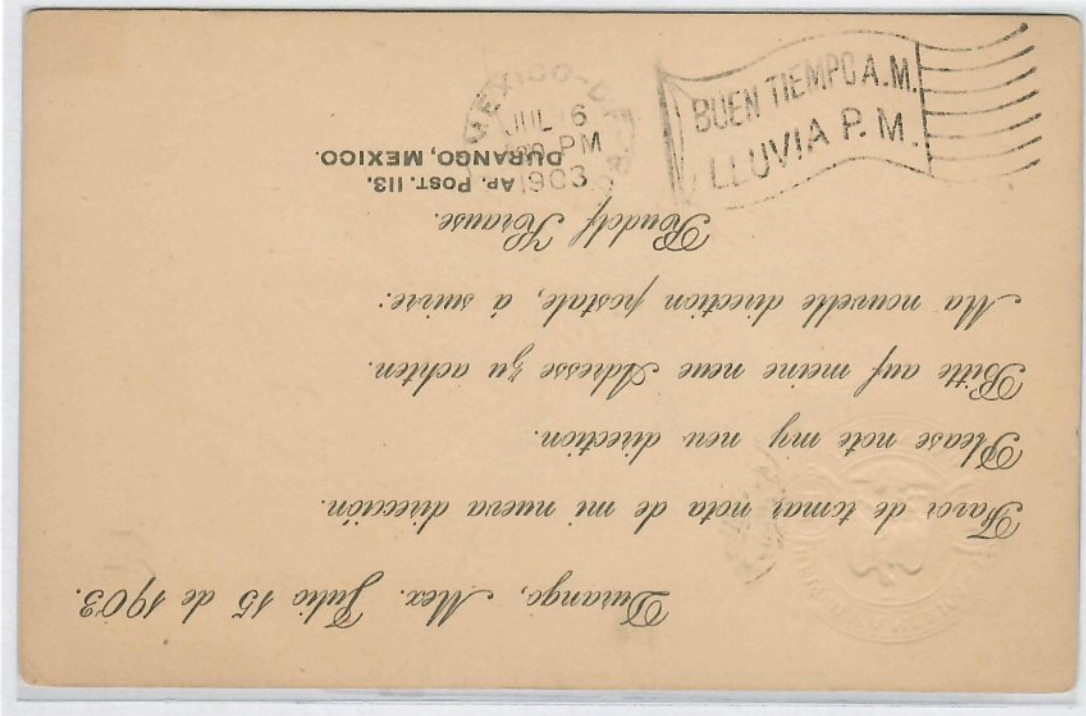 Durango, Mex. Julio 15 de 1903.
Favor de tomar nota de mi nueva dirección.
Please note my new direction.
Bitte auf meine neue Adresse zu achten.
Ma nouvelle direction postale, á suivre:
Roudolf Krause.
AP. POST. 113.
DURANGO, MEXICO.
MEXICO-D.F.
JUL 16
PM
1903
BUEN TIEMPO A.M.
LLUVIA P.M.